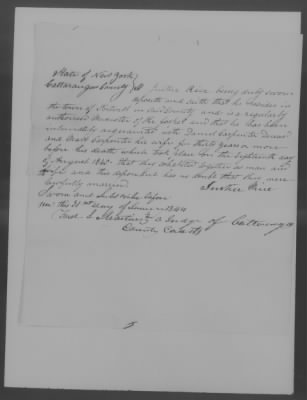 State of New York
Cattaraugus County SS Justice Rice being duly sworn
deposeth and saith that he resides in
the town of in said County and is a regularly
authorised Minister of the Gospel and that he has been
intimately acquainted with Daniel Carpenter
and Carpenter his wife for thirty years or more
before his death which took place on the day
of August 1840 that they cohabited together as man and
wife and this deponent has no doubt that they were
lawfully married
Justice Rice
Sworn and Subscribed before
me this 21st day of 1844
a Judge of Cattaraugus
County Courts